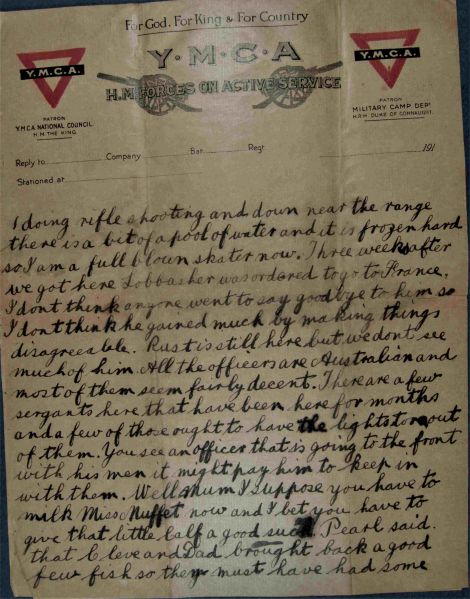 For God. For King & For Country
Y.M.C.A
H.M. FORCES ON ACTIVE SERVICE
Y.M.C.A.
PATRON
Y.M.C.A. NATIONAL COUNCIL.
H.M. THE KING.
Y.M.C.A.
PATRON
MILITARY CAMP DEPT
H.R.H. DUKE OF CONNAUGHT.
Reply to Company Bat. Regt. 191
Stationed at
I doing rifle shooting and down near the range
there is a bit of a pool of water and it is frozen hard
so I am a full blown skater now. Three weeks after
we got here Lobbasher was ordered to go to France.
I dont think anyone went to say goodbye to him so
I dont think he gained much by making things
disagreeable. Rust is still here but we dont see
much of him. All the officers are Australian and
most of them seem fairly decent. There are a few
sergants here that have been here for months
and a few of those ought to have the lights torn out
of them. You see an officer that is going to the front
with his men it might pay him to keep in
with them. Well Mum I suppose you have to
milk Miss Muffet now and I bet you have to
give that little calf a good suck. Pearl said
that Cleve and Dad brought back a good
few fish so they must have had some